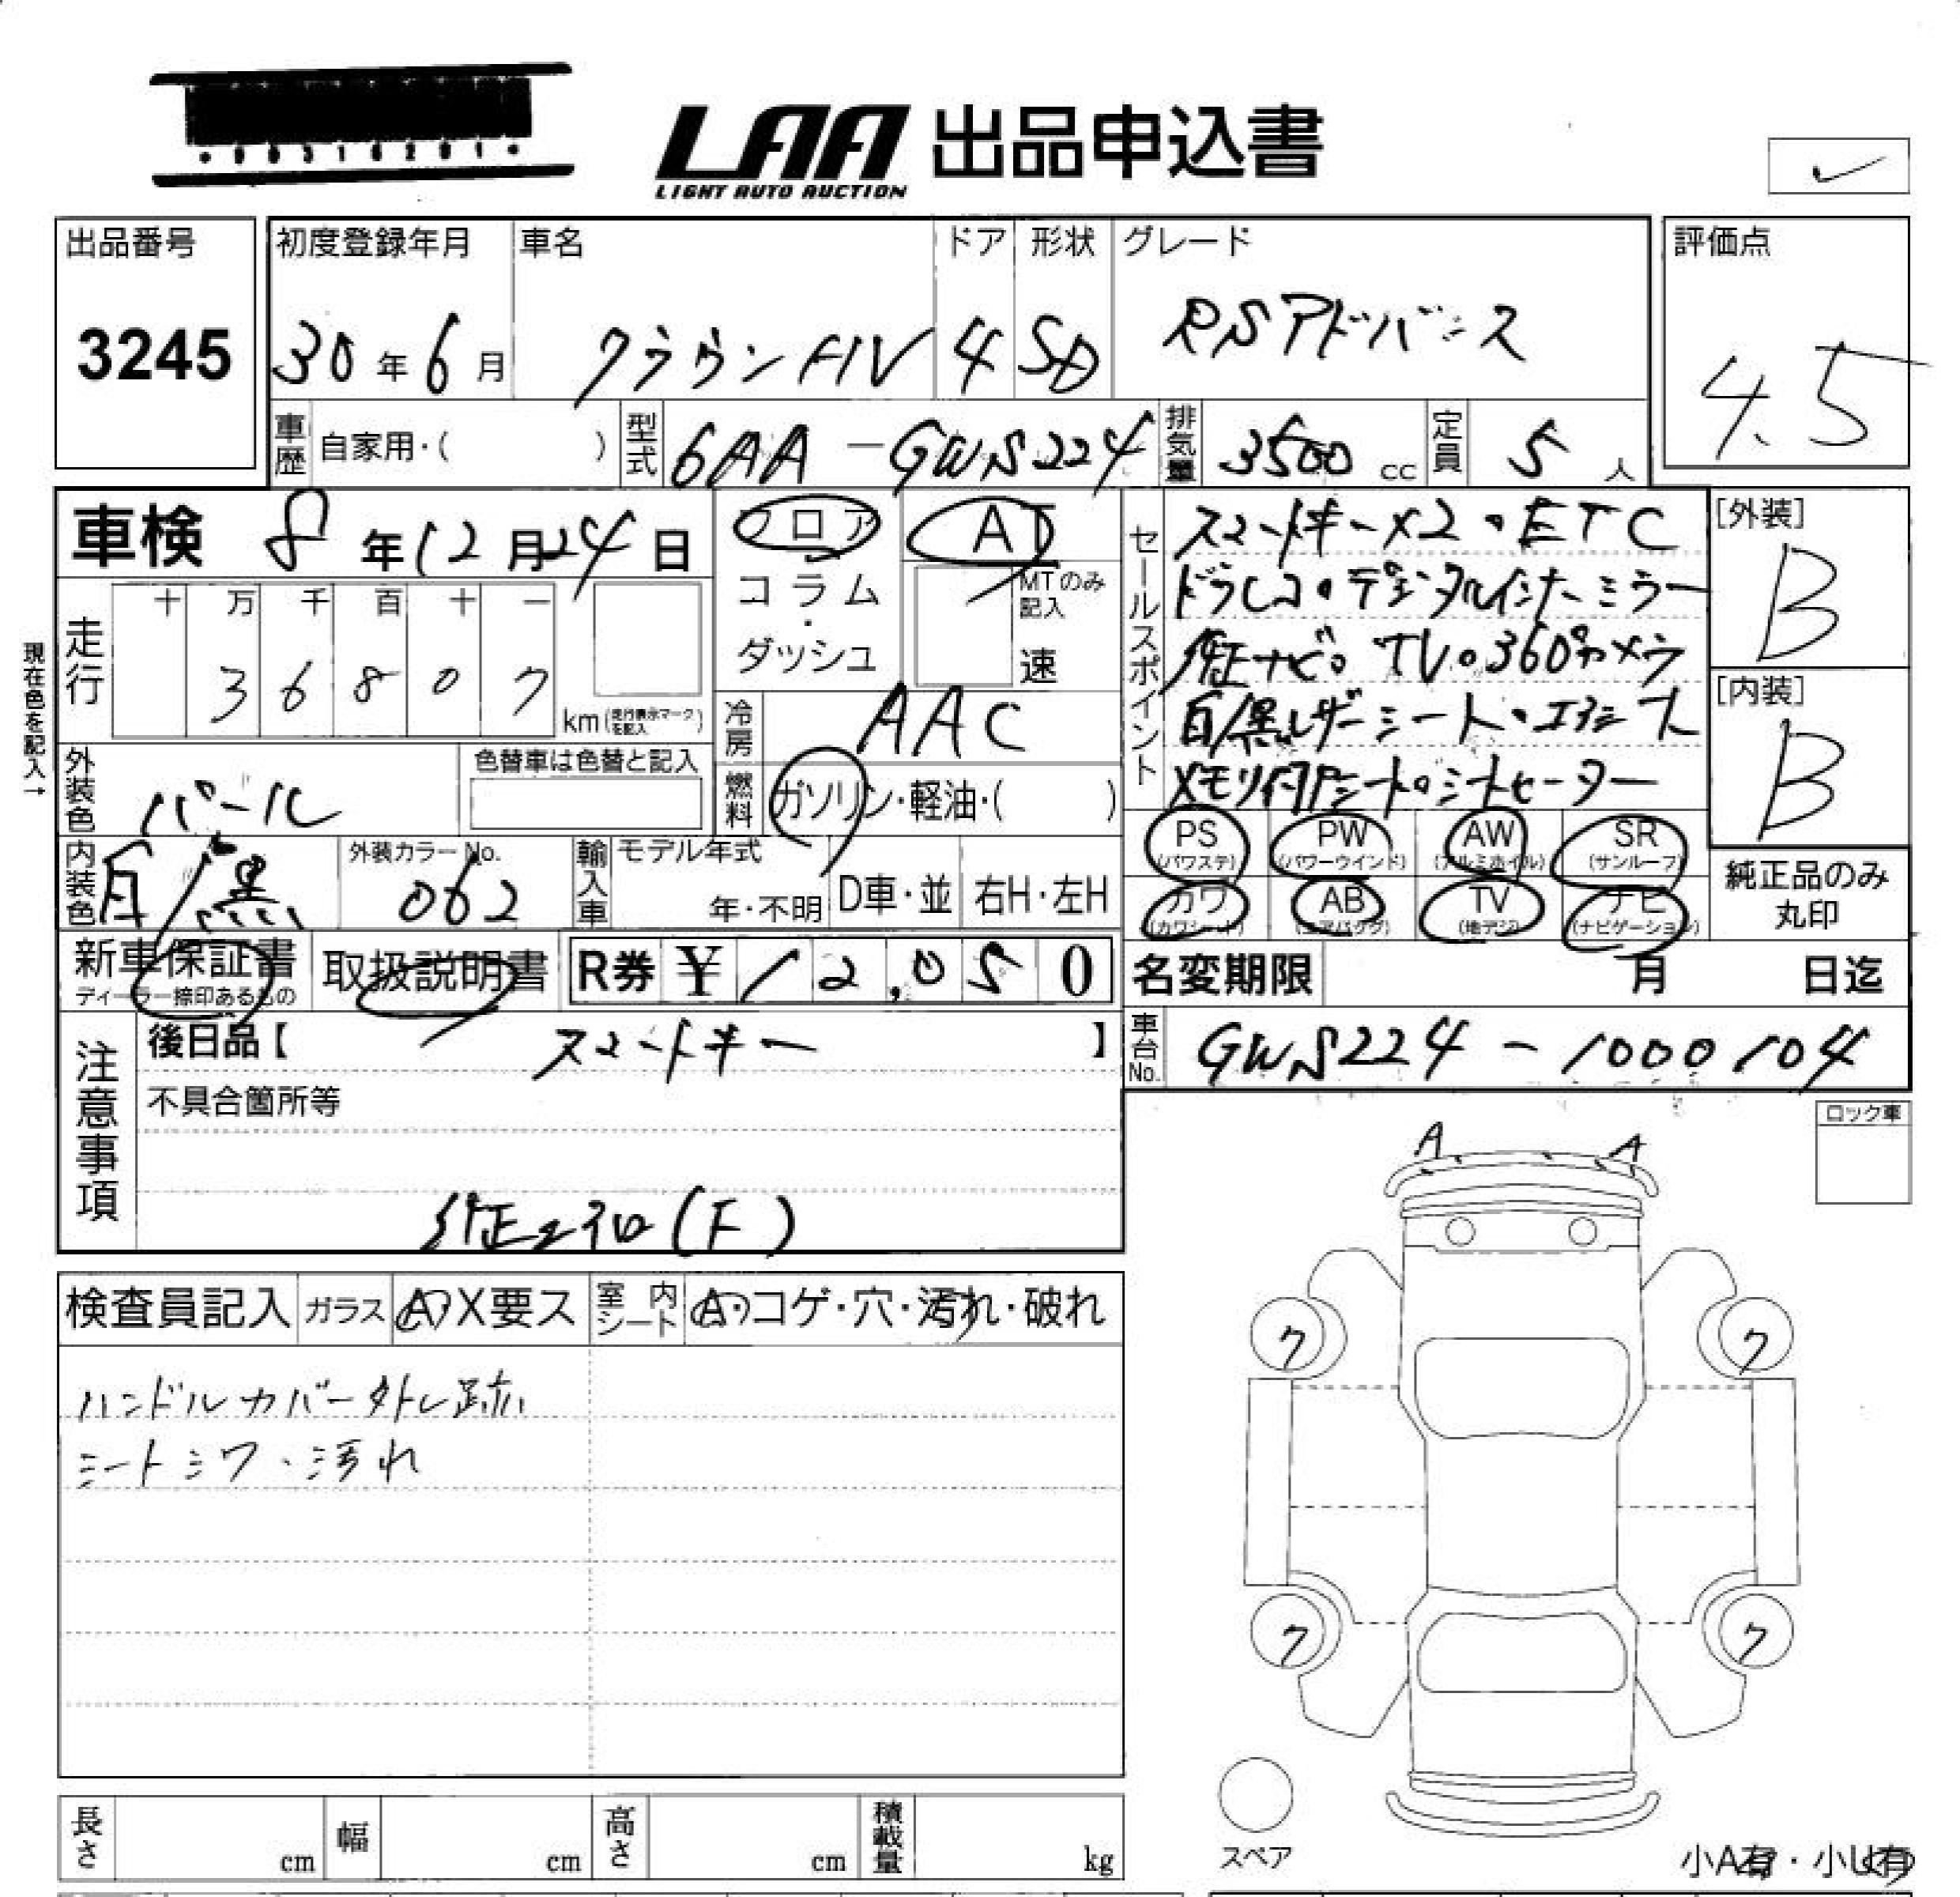 LAA 出品申込書
LIGHT AUTO AUCTION
出品番号
3245
初度登録年月
30年6月
車名
クラウンHV
ドア
4
形状
SD
グレード
RSアドバンス
評価点
4.5
車歴 自家用・( )
型式 6AA-GWS224
排気量 3500 cc
定員 5 人
車検 8年12月24日
フロア
コラム
・
ダッシュ
AT
MTのみ
記入
速
セールスポイント
スマートキー×2・ETC
ドラレコ・デジタルインナーミラー
純正ナビ・TV・360°カメラ
白/黒レザーシート・エアシート
メモリ付Pシート・シートヒーター
[外装]
B
[内装]
B
現在色を記入→
走行
十 万 千 百 十 一
3 6 8 0 7
km(走行表示マークを記入)
冷房 AAC
燃料 ガソリン・軽油・( )
外装色 パール
色替車は色替と記入
内装色 白/黒
外装カラーNo.
062
輸入車
モデル年式
年・不明
D車・並
右H・左H
PS
(パワステ)
PW
(パワーウインド)
AW
(アルミホイル)
SR
(サンルーフ)
カワ
(カワシート)
AB
(エアバッグ)
TV
(地デジ)
ナビ
(ナビゲーション)
純正品のみ
丸印
新車保証書
ディーラー捺印あるもの
取扱説明書
R券 ¥12,050
名変期限 月 日迄
車台No. GWS224-1000104
注意事項
後日品【 スマートキー 】
不具合箇所等
純正エアロ(F)
ロック車
A A
検査員記入
ガラス A・X要ス
室内シート A・コゲ・穴・汚れ・破れ
ハンドルカバー外し跡
シートシワ・汚れ
ク ク
ク ク
スペア
小A有・小U有
長さ cm
幅 cm
高さ cm
積載量 kg